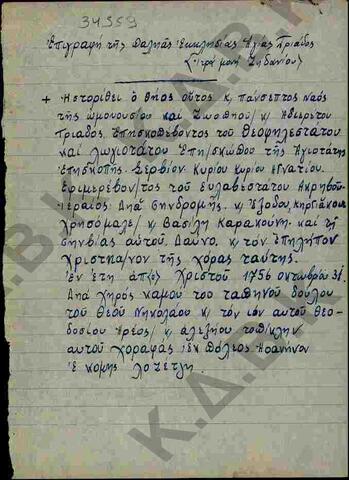 34559
Επιγραφή της Παληάς Εκκλησίας Αγίας Τριάδος
(Ιερά μονή Ζηδανίου)
+ Ηστορίθει ο θήος ούτος κ πάνσεπτος Ναός
της ωμοουσίου και Ζωοθηού κ Αδιερέτου
Τριαδος. Επησκοπέβοντος του Θεοφηλεστάτου
και λωγιοτάτου Επησκώπου της Αγιοτάτης
επησκοπής Σερβίον Κυρίου κυρίου Ηγνατίου.
Εφιμερέβοντος του ευλαβεστάτου
ιεραίος Δηά Σηνδρομής κ Εξόδου,
Χρησόμαλε κ Βασίλη Καρακούνη. και τη
σηνβίας αυτού, Δαύνο. κ τον επηλήπον
χρισtηανον της χόρας ταύτης.
Εν έτη από Χριστού 1756 οκτωβρου 31.
Δηά χηρός καμού του ταπηνού δούλου
του Θεού Νηκολάου κ τον ιόν αυτού Θεο-
δοσίου κ αλεξήου
αυτού χοραφάς εκ πόλεος Ηοανήνον
ε κόμης